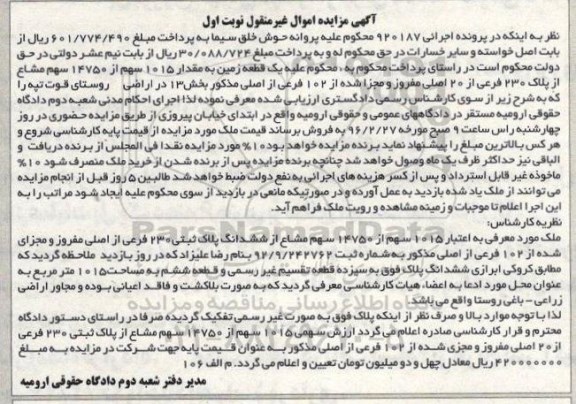 آگهی مزایده اموال غیرمنقول نوبت اول
نظر به اینکه در پرونده اجرائی ۹۲۰۱۸۷ محکوم علیه پروانه حوش خلق سیما به پرداخت مبلغ ۶۰۱/۷۷۴/۴۹۰ ریال از
بابت اصل خواسته و سایر خسارات در حق محکوم له و به پرداخت مبلغ ۳۰/۰۸۸/۷۲۴ ریال از بابت نیم عشر دولتی در حق
دولت محکوم است در راستای پرداخت محکوم به ، محکوم علیه یک قطعه زمین به مقدار ۱۰۱۵ سهم از ۱۴۷۵۰ سهم مشاع
از پلاک ۲۳۰ فرعی از ۲۰ اصلی مفروز و مجزا شده از ۱۰۲ فرعی از اصلی مذکور بخش ۱۳ در اراضی روستای قوت تپه را
که به شرح زیر از سوی کارشناس رسمی دادگستری ارزیابی شده معرفی نموده لذا اجرای احکام مدنی شعبه دوم دادگاه
حقوقی ارومیه مستقر در دادگاههای عمومی و حقوقی ارومیه واقع در ابتدای خیابان پیروزی از طریق مزایده حضوری در روز
چهارشنبه راس ساعت ۹ صبح مورخه ۹۶/۲/۲۷ به فروش برساند قیمت ملک مورد مزایده از قیمت پایه کارشناسی شروع و
هر کس بالاترین مبلغ را پیشنهاد نماید برنده مزایده خواهد بود ۱۰% مورد مزایده نقدا فی المجلس از برنده دریافت و
الباقی نیز حداکثر ظرف یک ماه وصول خواهد شد چنانچه برنده مزایده پس از برنده شدن از خرید ملک منصرف شود ۱۰%
ماخوذه غیر قابل استرداد و پس از کسر هزینه های اجرائی به نفع دولت ضبط خواهد شد طالبین ۵ روز قبل از انجام مزایده
می توانند از ملک یاد شده بازدید به عمل آورده و در صورتیکه مانعی در بازدید از سوی محکوم علیه ایجاد شود مراتب را به
این اجرا اعلام تا موجبات و زمینه مشاهده و رویت ملک فراهم آید.
نظریه کارشناس:
ملک مورد معرفی به اعتبار ۱۰۱۵ سهم از ۱۴۷۵۰ سهم مشاع از ششدانگ پلاک ثبتی ۲۳۰ فرعی از اصلی مفروز و مجزای
شده از ۱۰۲ فرعی از اصلی مذکور به شماره ثبت ۹۲/۹/۲۴۲۷۶۲ بنام رضا علیزاد که در روز بازدید ملاحظه گردید که
مطابق کروکی ابرازی ششدانگ پلاک فوق به سیزده قطعه تقسیم غیر رسمی و قطعه ششم به مساحت ۱۰۱۵ متر مربع به
عنوان محل مورد ادعا به اعضاء هیات کارشناسی معرفی گردید که به صورت بلاکشت و فاقد اعیانی بوده و مجاور اراضی
زراعی - باغی روستا واقع می باشد.
لذا با توجه موارد بالا و صرف نظر از اینکه پلاک فوق به صورت غیر رسمی تفکیک گردیده صرفا در راستای دستور دادگاه
محترم و قرار کارشناسی صادره اعلام می گردد ارزش سهمی ۱۰۱۵ سهم از ۱۴۷۵۰ سهم مشاع از پلاک ثبتی ۲۳۰ فرعی
از ۲۰ اصلی مفروز و مجزی شده از ۱۰۲ فرعی از اصلی مذکور به عنوان قیمت پایه جهت شرکت در مزایده به مبلغ
۴۲۰۰۰۰۰۰۰ ریال معادل چهل و دو میلیون تومان تعیین و اعلام می گردد. م الف ۱۰۶
مدیر دفتر شعبه دوم دادگاه حقوقی ارومیه
ParsNamadData